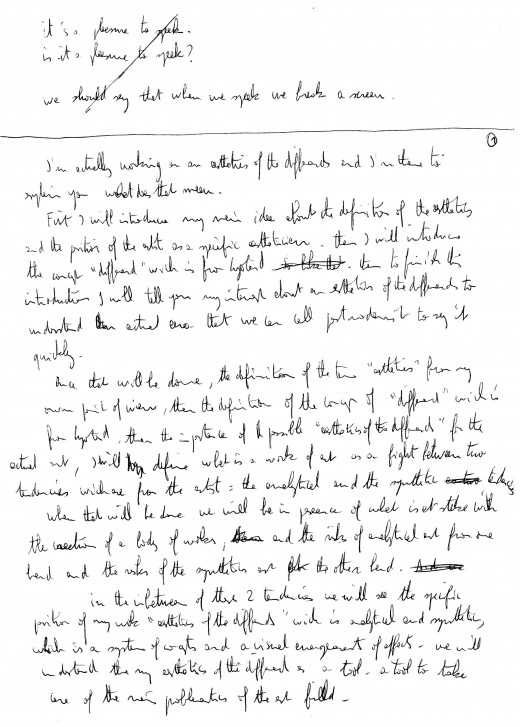 it's a pleasure to speak.
is it a pleasure to speak?
we should say that when we speak we break a screen.
1
I'm actually working on an esthetics of the differends and I'm there to
explain you what does that mean.
First I will introduce my main idea about the definition of the esthetics
and the position of the artist as a specific esthetician. then I will introduce
the concept "differend" wich is from lyotard. then to finish this
introduction I will tell you my interest about an esthetics of the differends to
understand actual era that we can call postmodernist to say it
quickly.
Once that will be done, the definition of the term "esthetics" from my
own point of view, then the definition of the concept of "differend" wich is
from lyotard, then the importance of a possible "esthetics of the differend" for the
actual art, I will define what is a work of art as a fight between two
tendencies wich are from the artist = the analytical and the synthetic
when that will be done we will be in presence of what is at stake with
the creation of a body of works, and the risks of analytical art from one
hand and the risks of the synthetic art the other hand.
in the inbetween of these 2 tendencies we will see the specific
position of my work "esthetics of the differends" wich is analytical and synthetic,
which is a system of and a visual arrangement of affects - we will
understand the my esthetics of the differend as a tool - a tool to take
care of the main problematics of the art field -